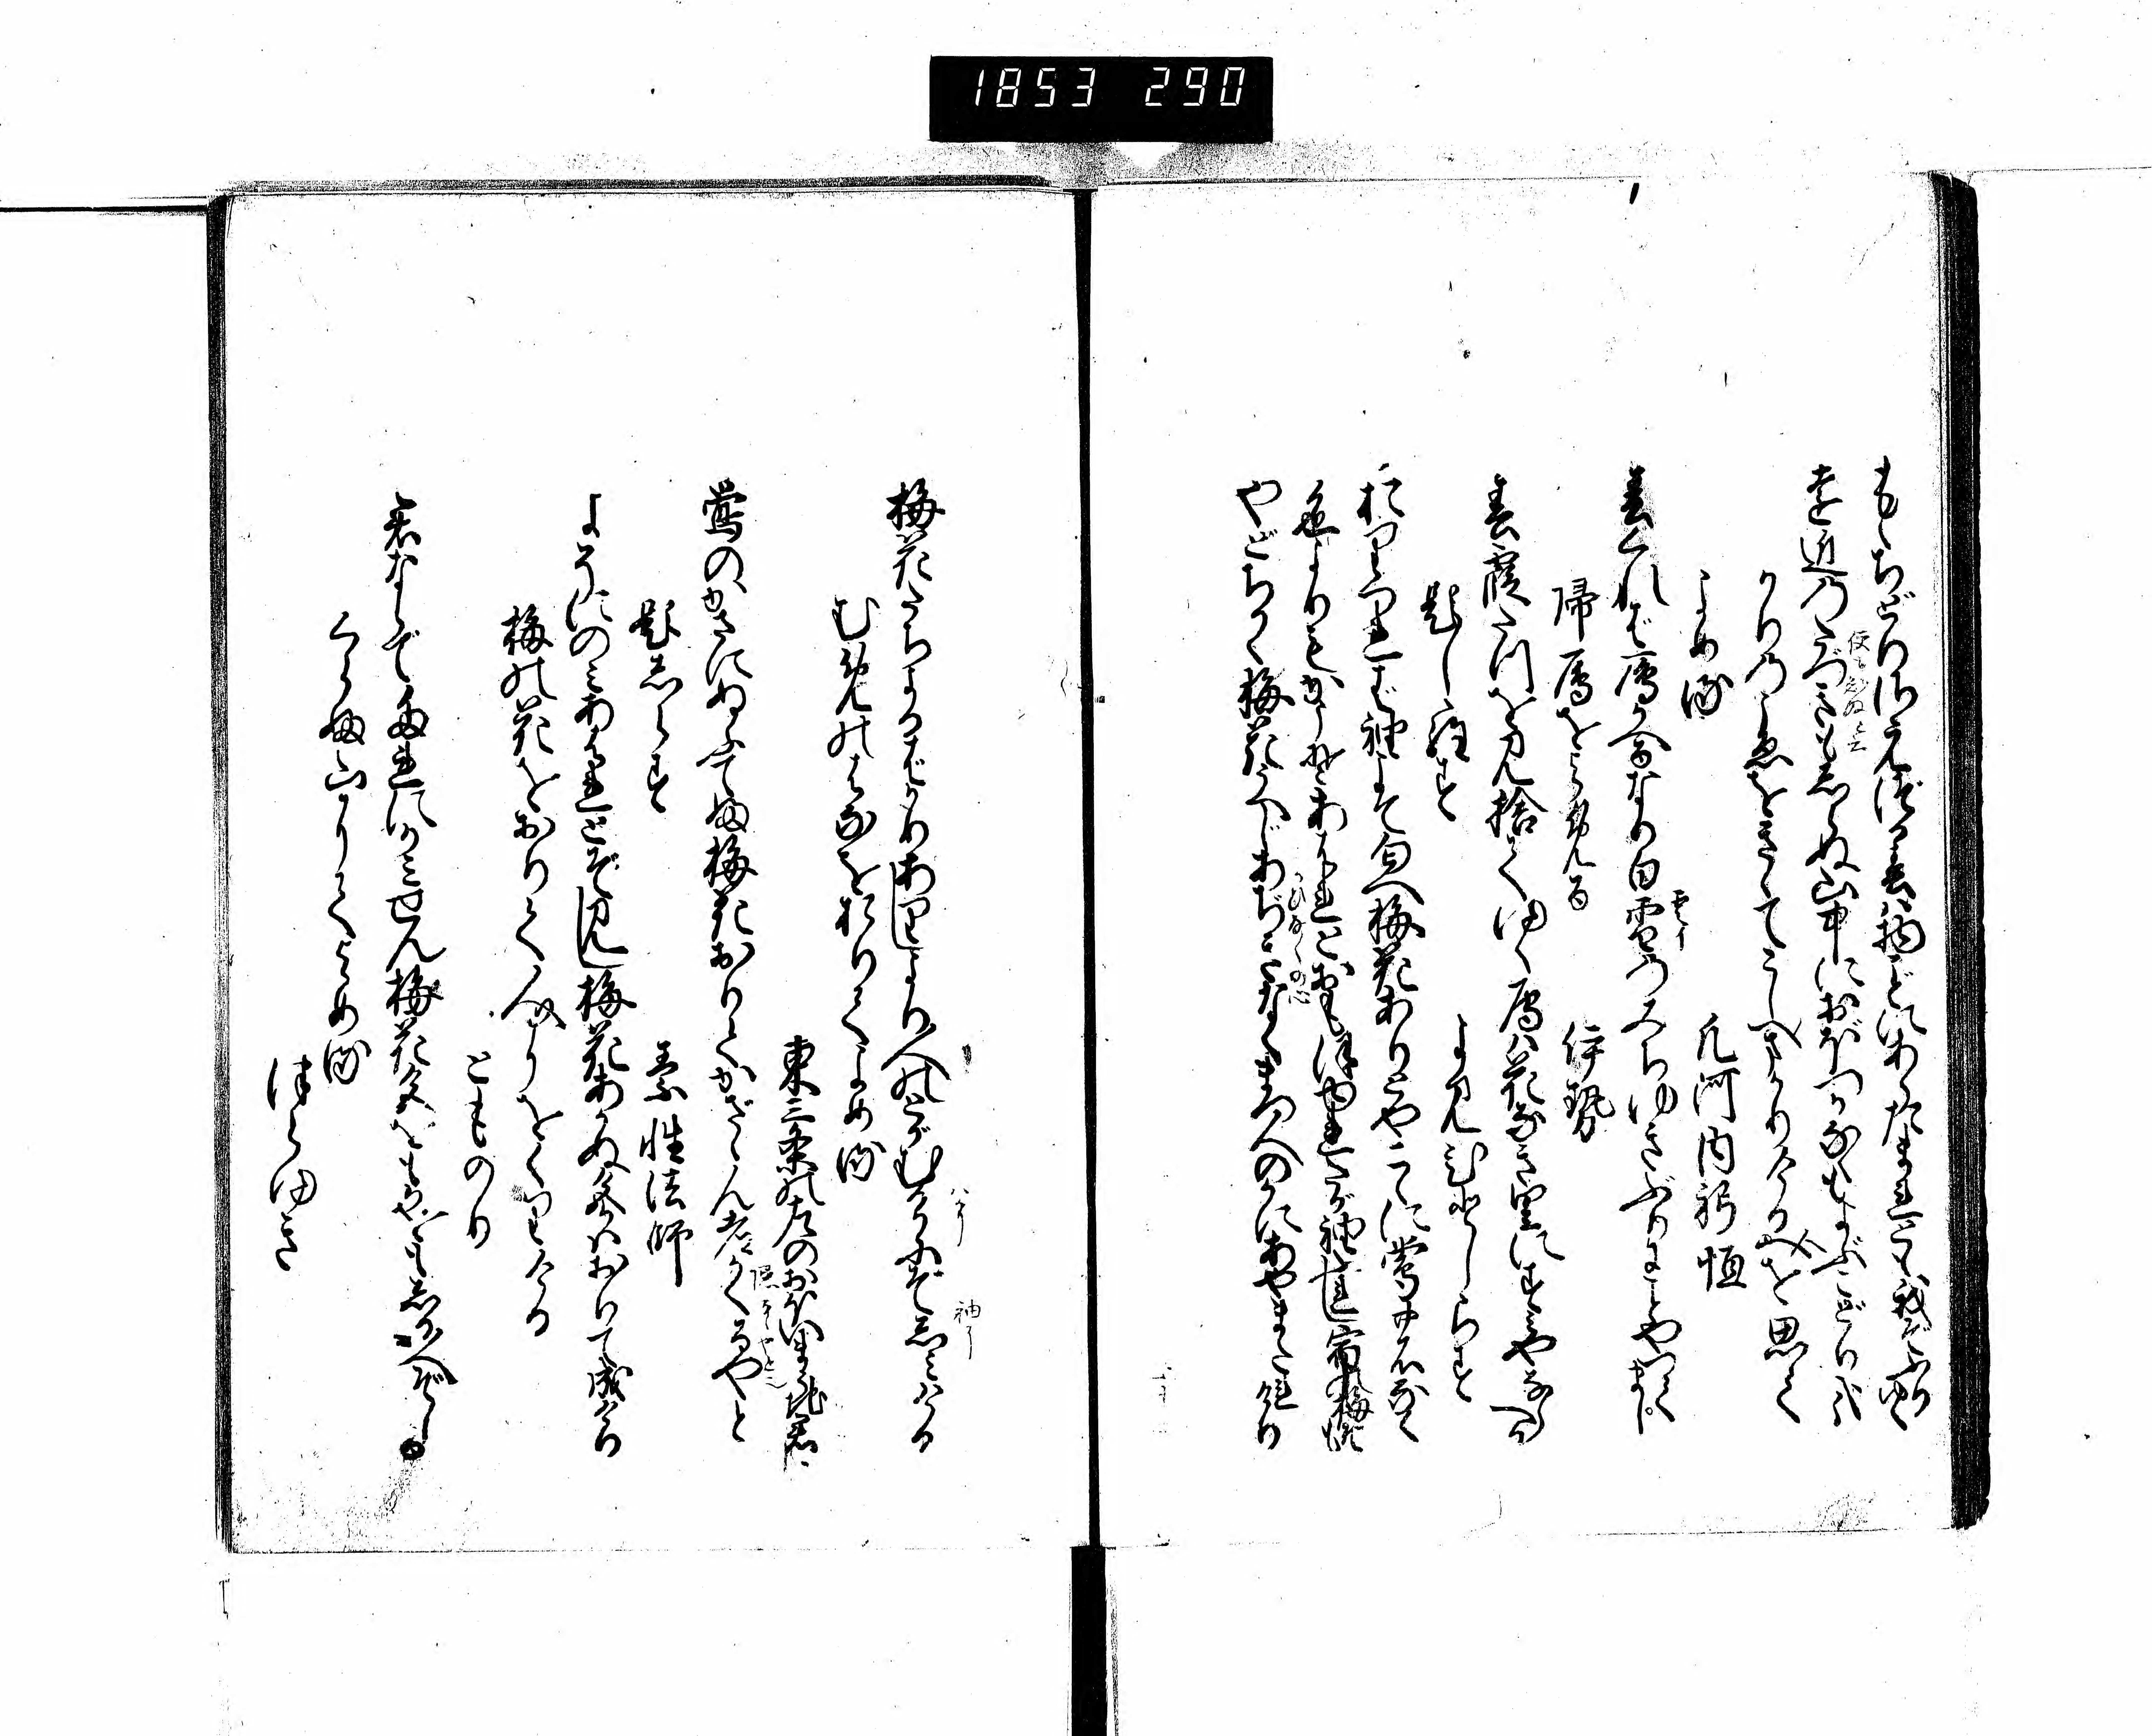 1853 290
もゝちどりさえづる春は物ごとにあらたまれども我ぞふりゆく
遠近のたづきもしらぬ山中におぼつかなくもよぶこどり哉
かりのこゑをきゝてこしへまかりける人を思て
よめる
凡河内躬恒
春くれば鴈かへるなり白雲のみちゆきぶりにことやつてまし
帰鴈をよめる
伊勢
春霞たつを見捨てゆく鴈は花なき里にすみやならへる
題しらず
よみ人しらず
折つれば袖こそ匂へ梅花ありとやこゝに鶯のなく
色よりもかこそあはれとおもほゆれたが袖ふれし宿の梅ぞも
やどちかく梅花うへじあぢきなくまつ人のかにあやまたれけり
梅花たちよるばかりありしより人のとがむるかにぞしみける
むめの花をおりてよめる
東三条の左のおほいまうち君
鶯のかさにぬふてふ梅花おりてかざゝん老かくるやと
題しらず
素性法師
よそにのみあはれとぞ見し梅花あかぬ色かはおりて成けり
梅の花をおりて人にをくりける
とものり
君ならで誰にか見せん梅花色をもかをもしる人ぞしる
くらぶ山にてよめる
つらゆき